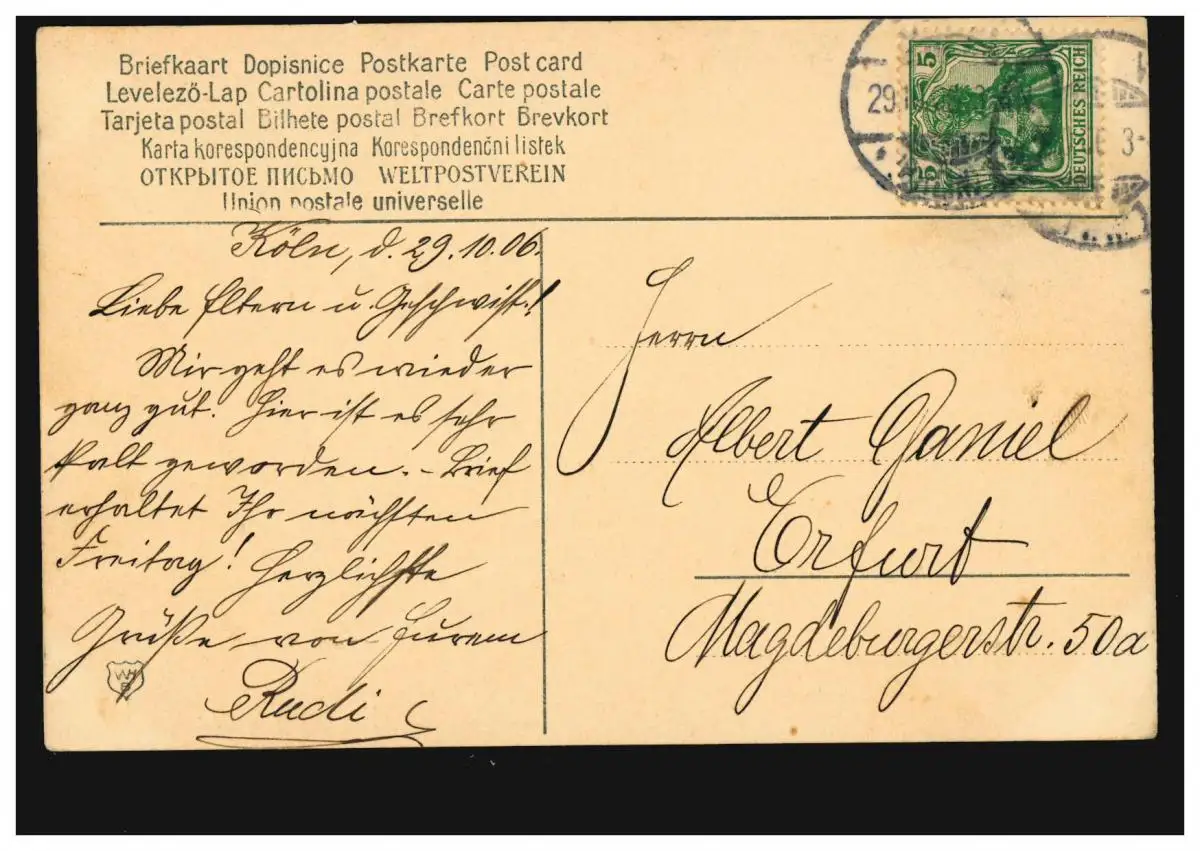 Briefkaart Dopisnice Postkarte Post card
Levelező-Lap Cartolina postale Carte postale
Tarjeta postal Bilhete postal Brefkort Brevkort
Karta korespondencyjna Korespondenční listek
ОТКРЫТОЕ ПИСЬМО WELTPOSTVEREIN
Union postale universelle
5 5
DEUTSCHES REICH
29
3-
Köln, d. 29.10.06.
Liebe Eltern u. Geschwist.!
Mir geht es wieder
ganz gut. Hier ist es sehr
kalt geworden. – Brief
erhaltet Ihr nächsten
Freitag! Herzlichste
Grüße von Eurem
Rudi
WH
B
Herrn
Albert Daniel
Erfurt
Magdeburgerstr. 50a